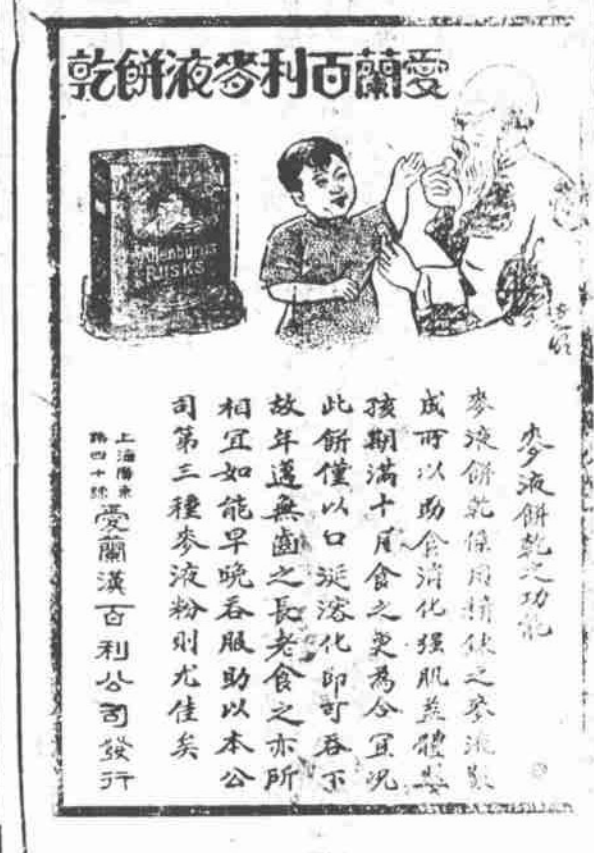 愛蘭百利麥液餅乾
Allenburys
RUSKS
麥液餅乾之功能
麥液餅乾係用精
之麥液製
成所以助食消化强肌益體嬰
孩期滿十月食之更為合宜况
此餅僅以口涎溶化即可吞下
故年邁無齒之長老食之亦所
相宜如能早晚吞服助以本公
司第三種麥液粉則尤佳矣
上海廣東
路四十號
愛蘭漢百利公司發行